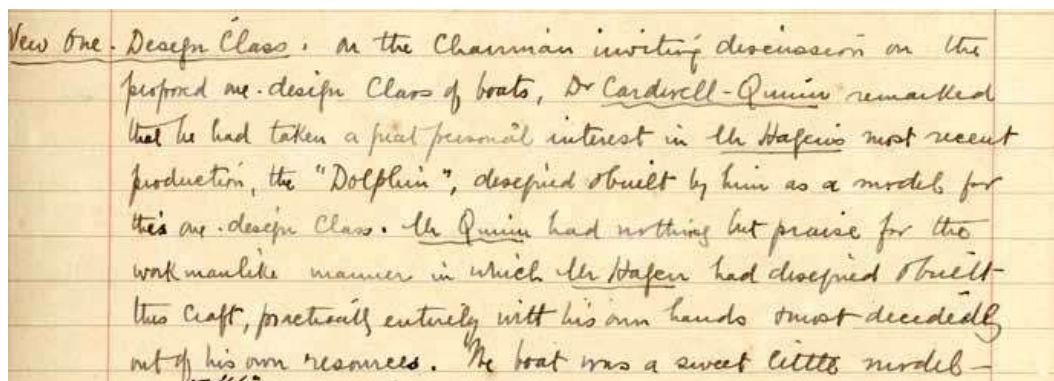 New One-Design Class. On the Chairman inviting discussion on the
proposed one-design Class of boats, Dr Cardwell-Quinn remarked
that he had taken a great personal interest in Mr Hagen's most recent
production, the "Dolphin", designed & built by him as a model for
this one-design Class. Mr Quinn had nothing but praise for the
workmanlike manner in which Mr Hagen had designed & built
this craft, practically entirely with his own hands & most decidedly
out of his own resources. The boat was a sweet little model -